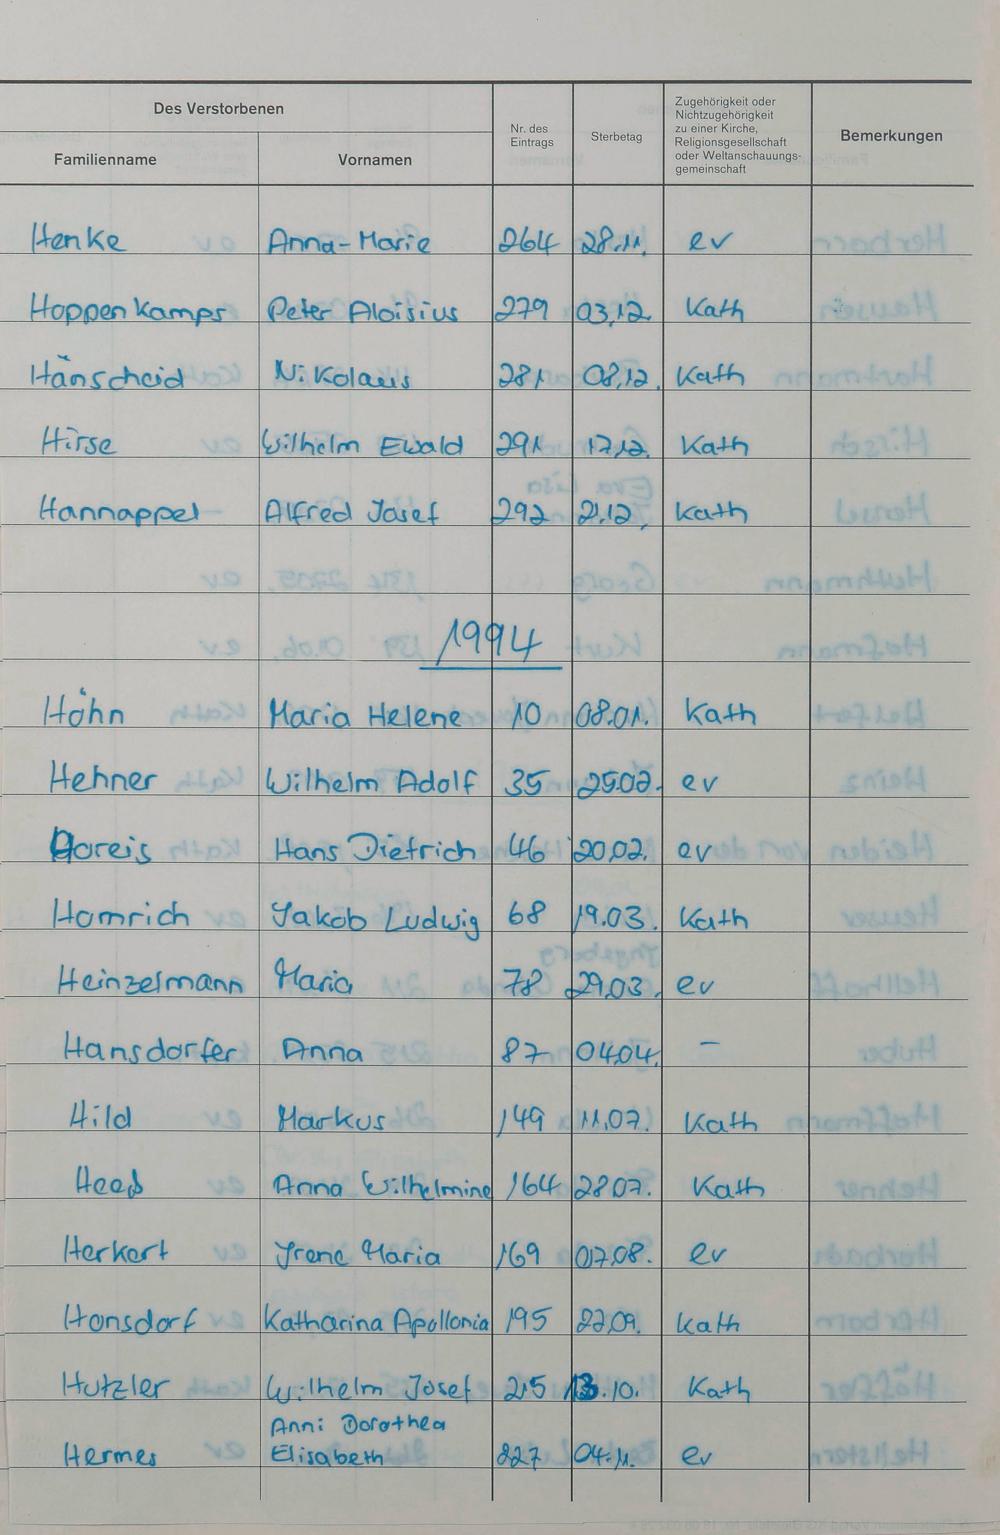 Des Verstorbenen
Familienname
Vornamen
Nr. des
Eintrags
Sterbetag
Zugehörigkeit oder
Nichtzugehörigkeit
zu einer Kirche,
Religionsgesellschaft
oder Weltanschauungs-
gemeinschaft
Bemerkungen
Henke Anna-Marie 264 28.11. ev
Hoppenkamps Peter Aloisius 279 03.12. Kath
Hänscheid Nikolaus 281 08.12. Kath
Hirse Wilhelm Ewald 291 17.12. Kath
Hannappel Alfred Josef 292 21.12. Kath
1994
Höhn Maria Helene 10 08.01. Kath
Hehner Wilhelm Adolf 35 25.02. ev
Horeis Hans Dietrich 46 20.02. ev
Homrich Jakob Ludwig 68 19.03. Kath
Heinzelmann Maria 78 29.03. ev
Hansdorfer Anna 87 04.04. –
Hild Markus 149 11.07. Kath
Anna Wilhelmine 164 28.07. Kath
Herkert Irene Maria 169 07.08. ev
Honsdorf Katharina Apollonia 195 22.09. Kath
Hutzler Wilhelm Josef 215 13.10. Kath
Anni Dorothea
Hermes Elisabeth 227 04.11. ev